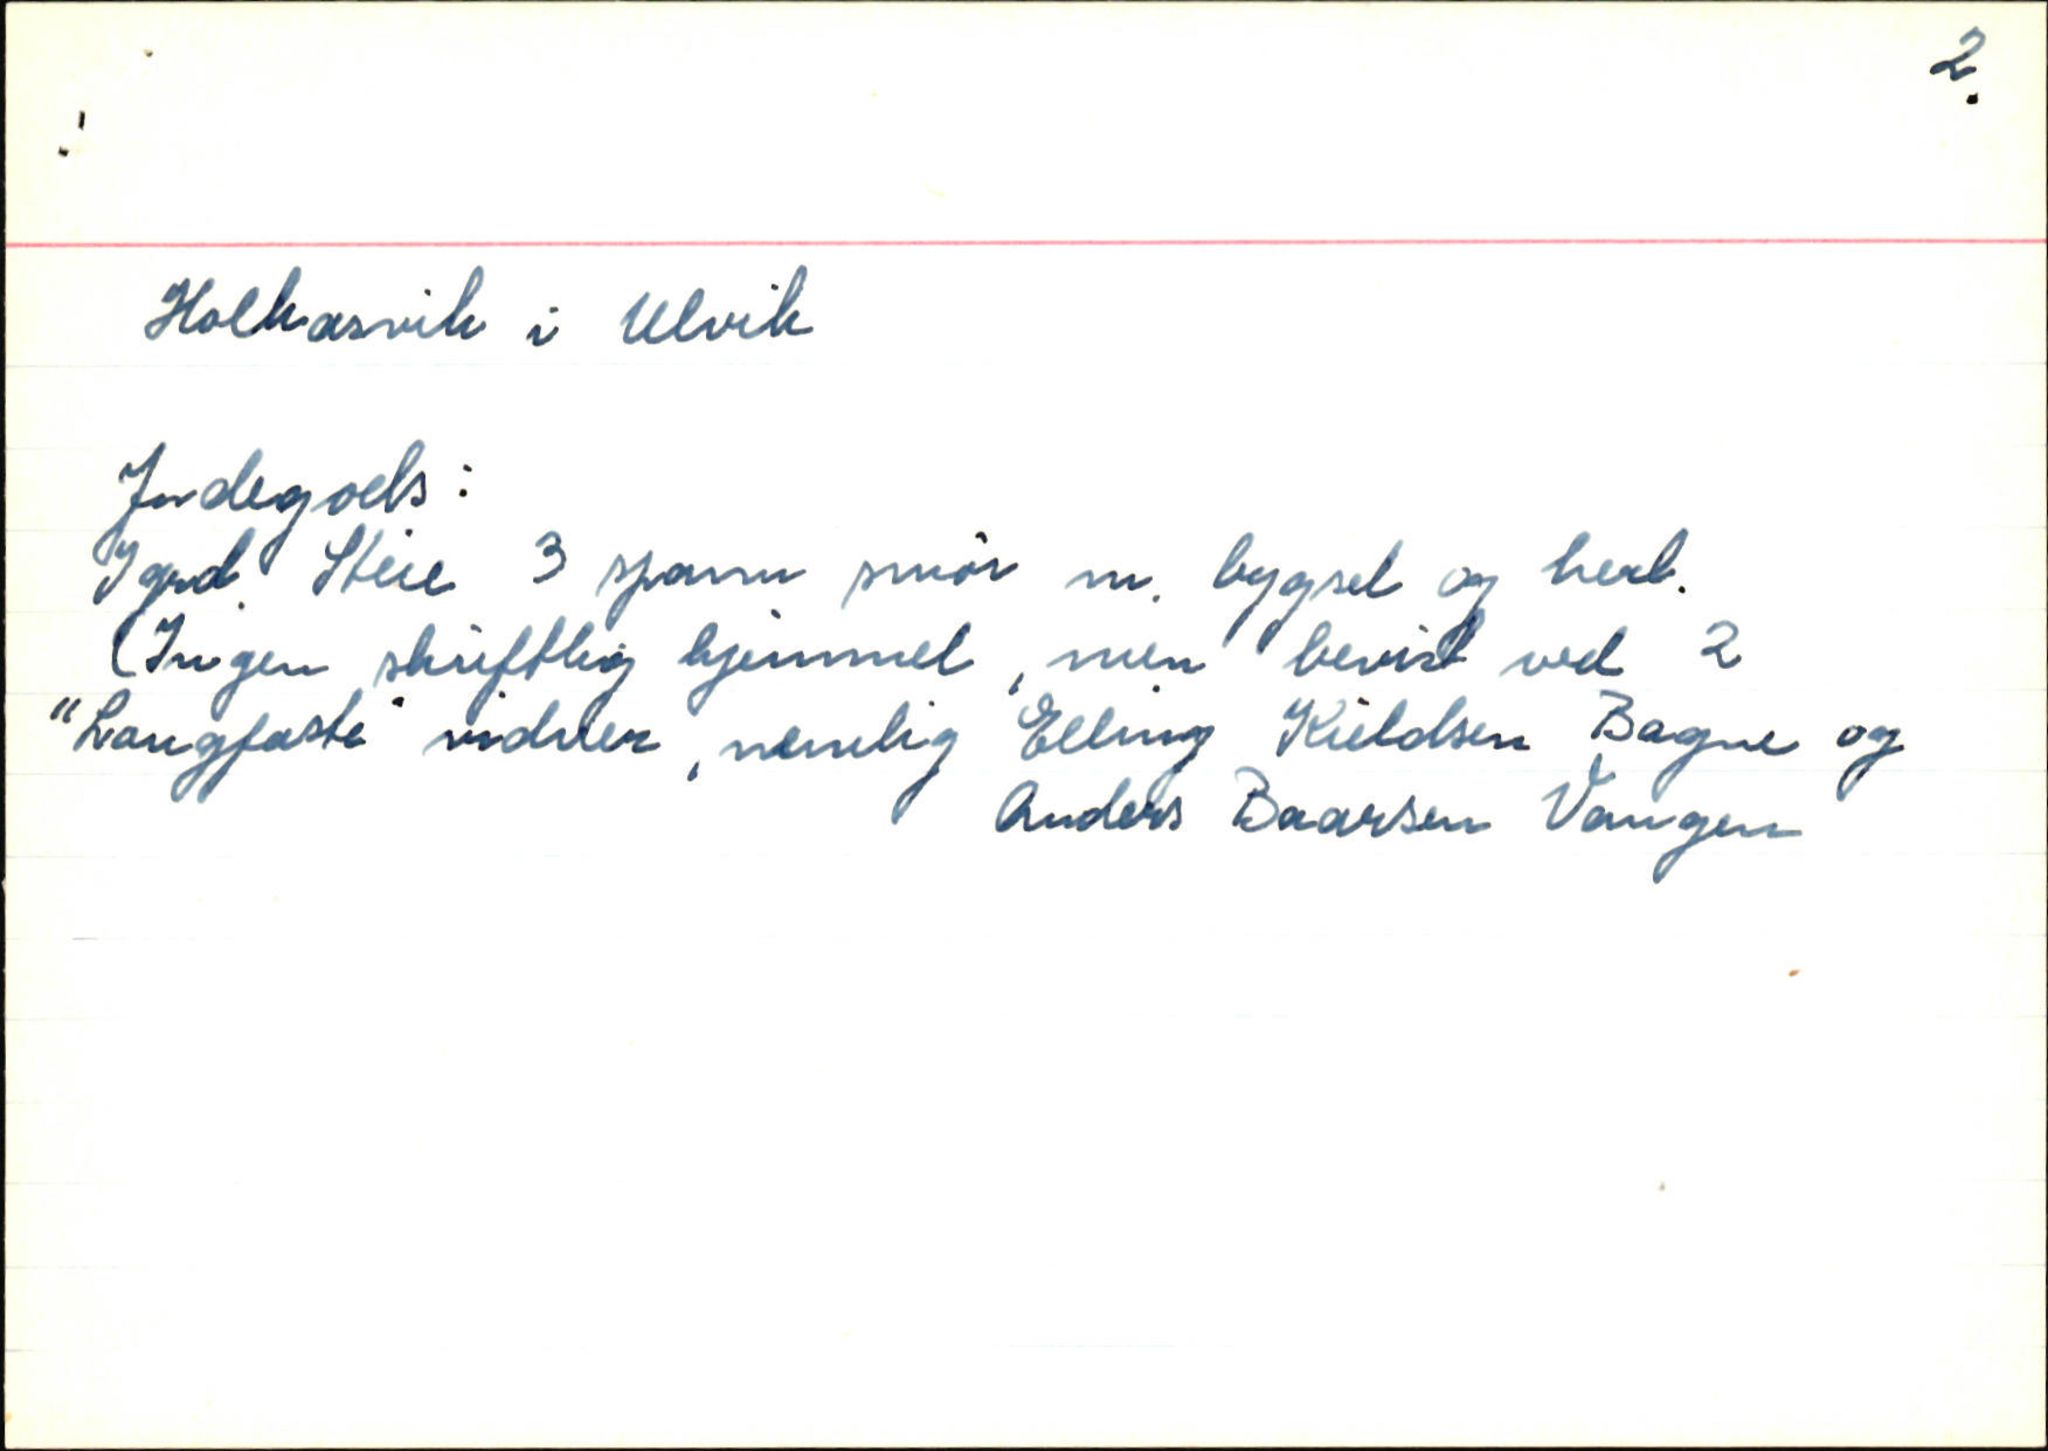 2.
Holkasvik i Ulvik
Indegods:
Igrd. Steie 3 spann smör m. bygsel og herl.
(Ingen skriftlig hjemmel, men bevist ved 2
"Langfaste" vidner, nemlig Elling Kieldsen Bagne og
Anders Baarsen Vangen